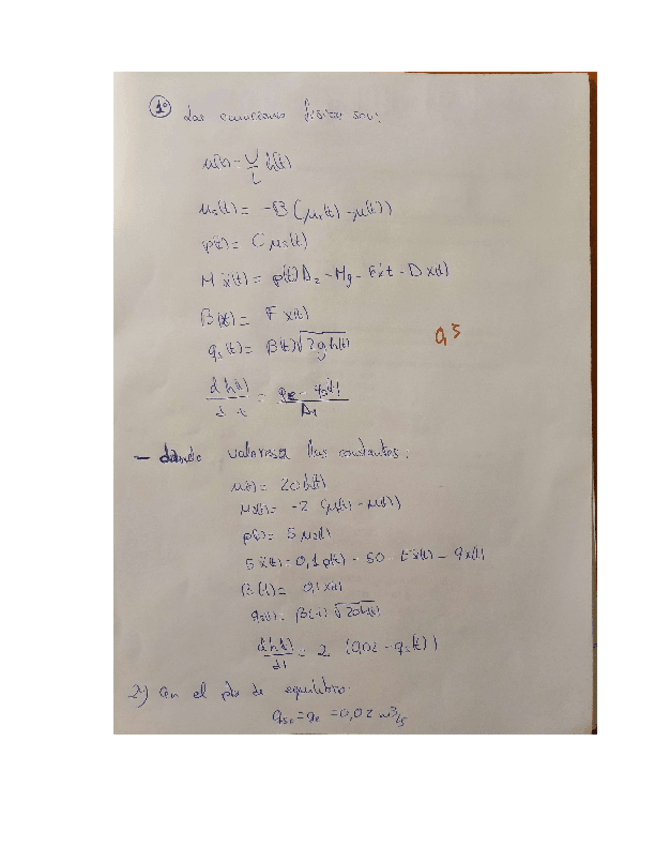 1º Las ecuaciones físicas son:
u(t) = U/L h(t)
u₂(t) = -B (u₁(t) - u(t))
p(t) = C u₂(t)
M ẍ(t) = p(t) A₂ - Mg - Eẋt - D x(t)
B(t) = F x(t)
qₛ(t) = B(t) √2g h(t)
q s
d h(t) / d t = qe - qₛ(t) / A₁
- dando valores a las constantes:
u(t) = 20 h(t)
u₂(t) = -2 (u₁(t) - u(t))
p(t) = 5 u₂(t)
5 ẍ(t) = 0,1 p(t) - 50 - ẋ(t) - 9 x(t)
B(t) = 0,1 x(t)
qₛ(t) = β(t) √20 h(t)
d h(t) / dt = 2 (0,02 - qₛ(t))
2º) en el pto de equilibrio:
qₛₑ = qe = 0,02 m³/s